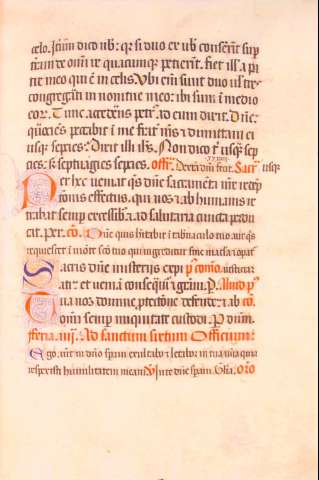 celo. Iterum dico uobis: quia si duo ex uobis consenserint super
terram de omni re quacumque petierint. fiet illis a pa
tre meo qui est in celis. Ubi enim sunt duo uel tres
congregati in nomine meo: ibi sum in medio
eorum. Tunc accedens petrus ad eum dixit. Domine.
quociens peccabit in me frater meus et dimittam ei
usque sepcies: Dixit illi ihesus. Non dico tibi usque sep
cies: sed usque septuagies sepcies. offer. Dextera domini fecit. Sacr usque
Per hec ueniat quesumus domine sacramenta nostre redemp
tionis effectus. qui nos et ab humanis re
trahat semper excessibus. et ad salutaria cuncta perdu
cat. Per. co. Domine quis habitabit in tabernaculo tuo aut quis
requiescet in monte sancto tuo qui ingreditur sine macula et operatur
Sacris domine misteriis expiati postcomo. iusticiam
et ueniam consequamur et gratiam. Per. Aliud post
Tua nos domine protectione defende: et ab co.
omni semper iniquitate custodi. Per dominum.
feria. iiij. Ad sanctum sixtum Officium:
Ego autem in domino speraui exultabo et letabor in tua misericordia quia
respexisti humilitatem meam. V In te domine speraui. Gloria. oro